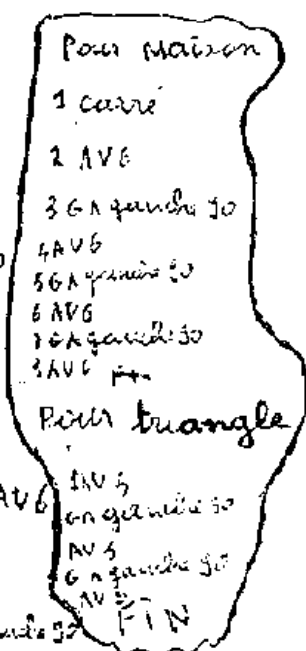 Pour Maison
1 carré
2 AV 6
3 GA gauche 90
4 AV 6
5 GA gauche 90
6 AV 6
7 GA gauche 90
8 AV 6
Pour triangle
AV 6
1 AV 5
GA gauche 90
AV 5
GA gauche 90
AV
90
FIN